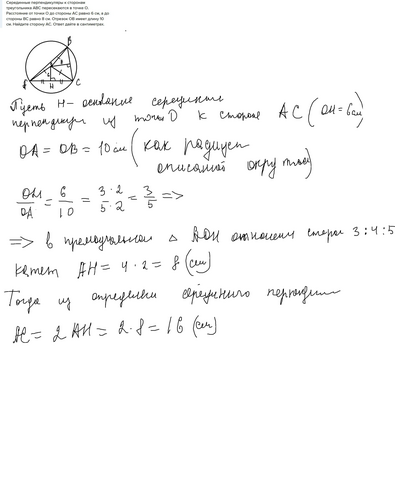 Серединные перпендикуляры к сторонам
треугольника ABC пересекаются в точке O.
Расстояние от точки O до стороны AC равно 6 см, а до
стороны BC равно 8 см. Отрезок OB имеет длину 10
см. Найдите сторону AC. Ответ дайте в сантиметрах.
B
8
O
6
H
C
Пусть H - основание середин
перпендикул из точки O к стороне AC (OH = 6 см)
OA = OB = 10 см (как радиусы
описанной окружн)
OH/OA = 6/10 = 3·2/5·2 = 3/5 =>
=> в прямоугольном △ AOH отношения сторон 3:4:5
катет AH = 4·2 = 8 (см)
Тогда из определен серединного перпенди
AC = 2AH = 2·8 = 16 (см)